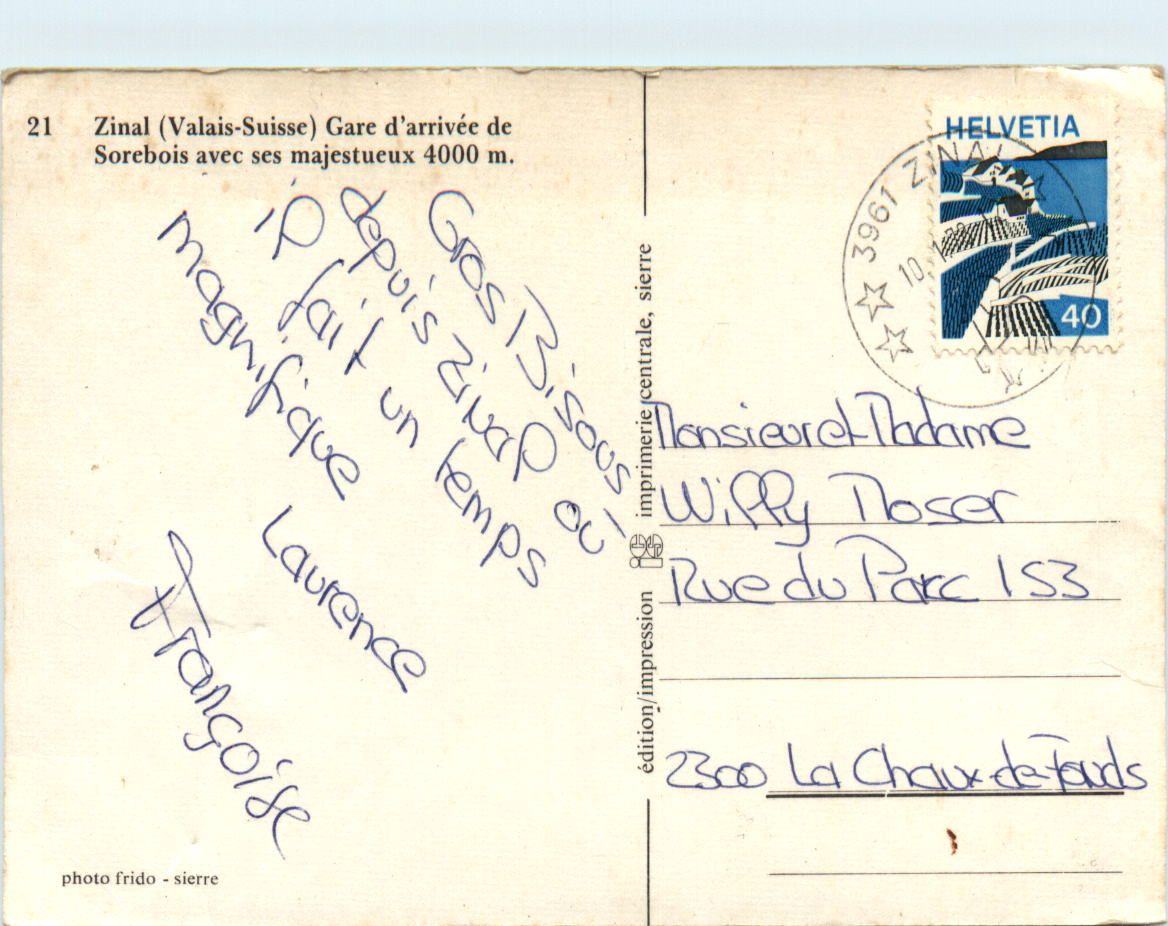 21 Zinal (Valais-Suisse) Gare d'arrivée de
Sorebois avec ses majestueux 4000 m.
Gros Bisous
depuis Zinal où
il fait un temps
magnifique
Laurence
Françoise
photo frido - sierre
édition/impression ies imprimerie centrale, sierre
HELVETIA
40
3961 ZINAL
10
Monsieur et Madame
Willy Moser
Rue du Parc 153
2300 La Chaux-de-Fonds